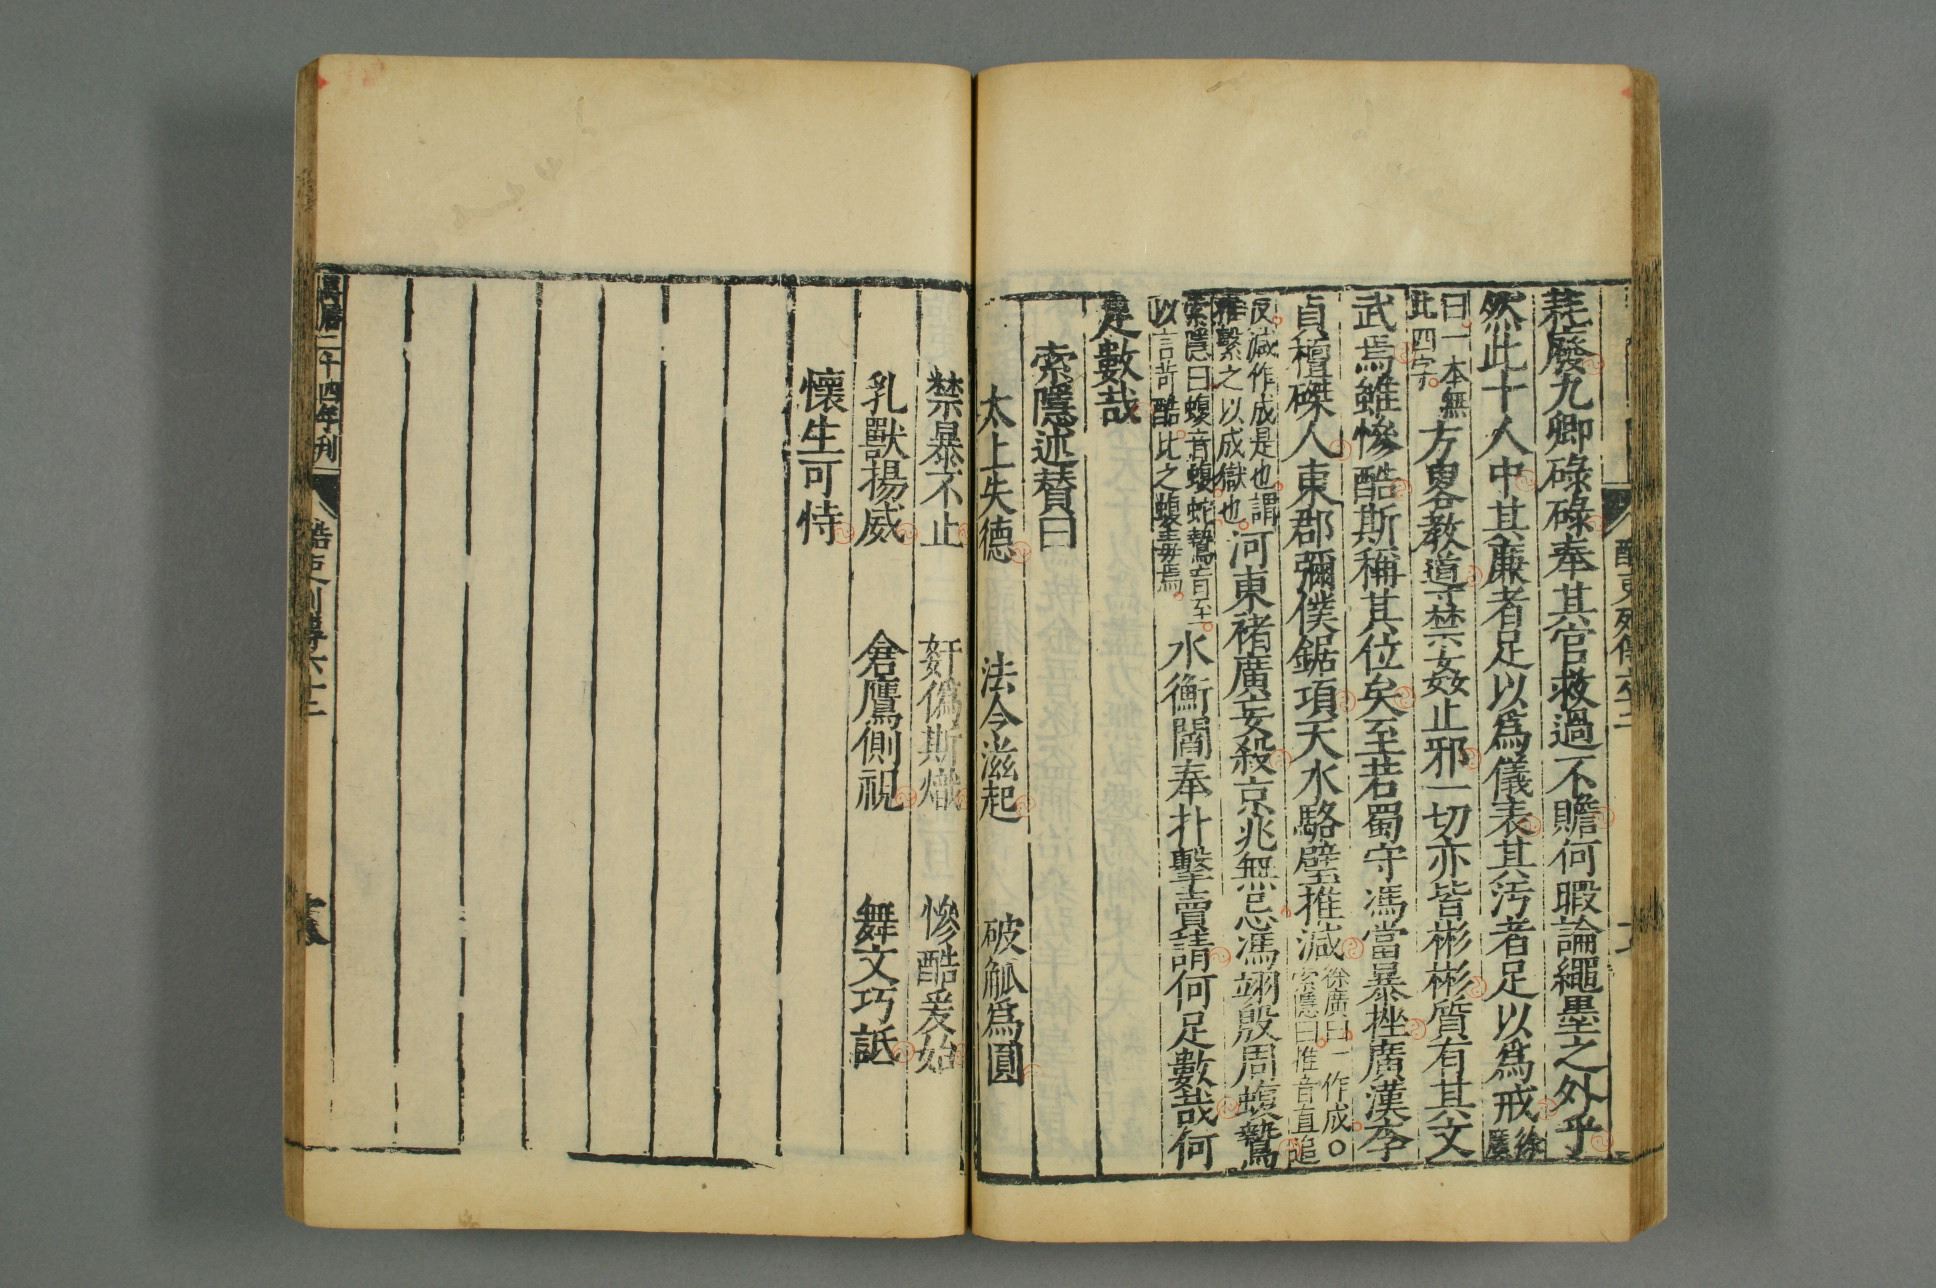 耗廢九卿碌碌奉其官救過不贍何暇論繩墨之外乎
然此十人中其廉者足以爲儀表其汚者足以爲戒徐廣
曰一本無此四字方畧教道禁姦止邪一切亦皆彬彬質有其文
武焉雖慘酷斯稱其位矣至若蜀守馮當暴挫廣漢李
貞擅磔人東郡彌僕鋸項天水駱璧推減徐廣曰一作成○索隱曰推音直追
反減作成是也謂推繫之以成獄也河東褚廣妄殺京兆無忌馮翊殷周蝮鷙
索隱曰蝮音蝮蛇鷙音至以言苛酷比之蝮毒焉水衡閻奉扑擊賣請何足數哉何
足數哉
索隱述贊曰
太上失德 法令滋起 破觚爲圓
禁暴不止 奸僞斯熾 慘酷爰始
乳獸揚威 倉鷹側視 舞文巧詆
懷生可恃
萬曆二十四年刊
酷吏列傳六十二